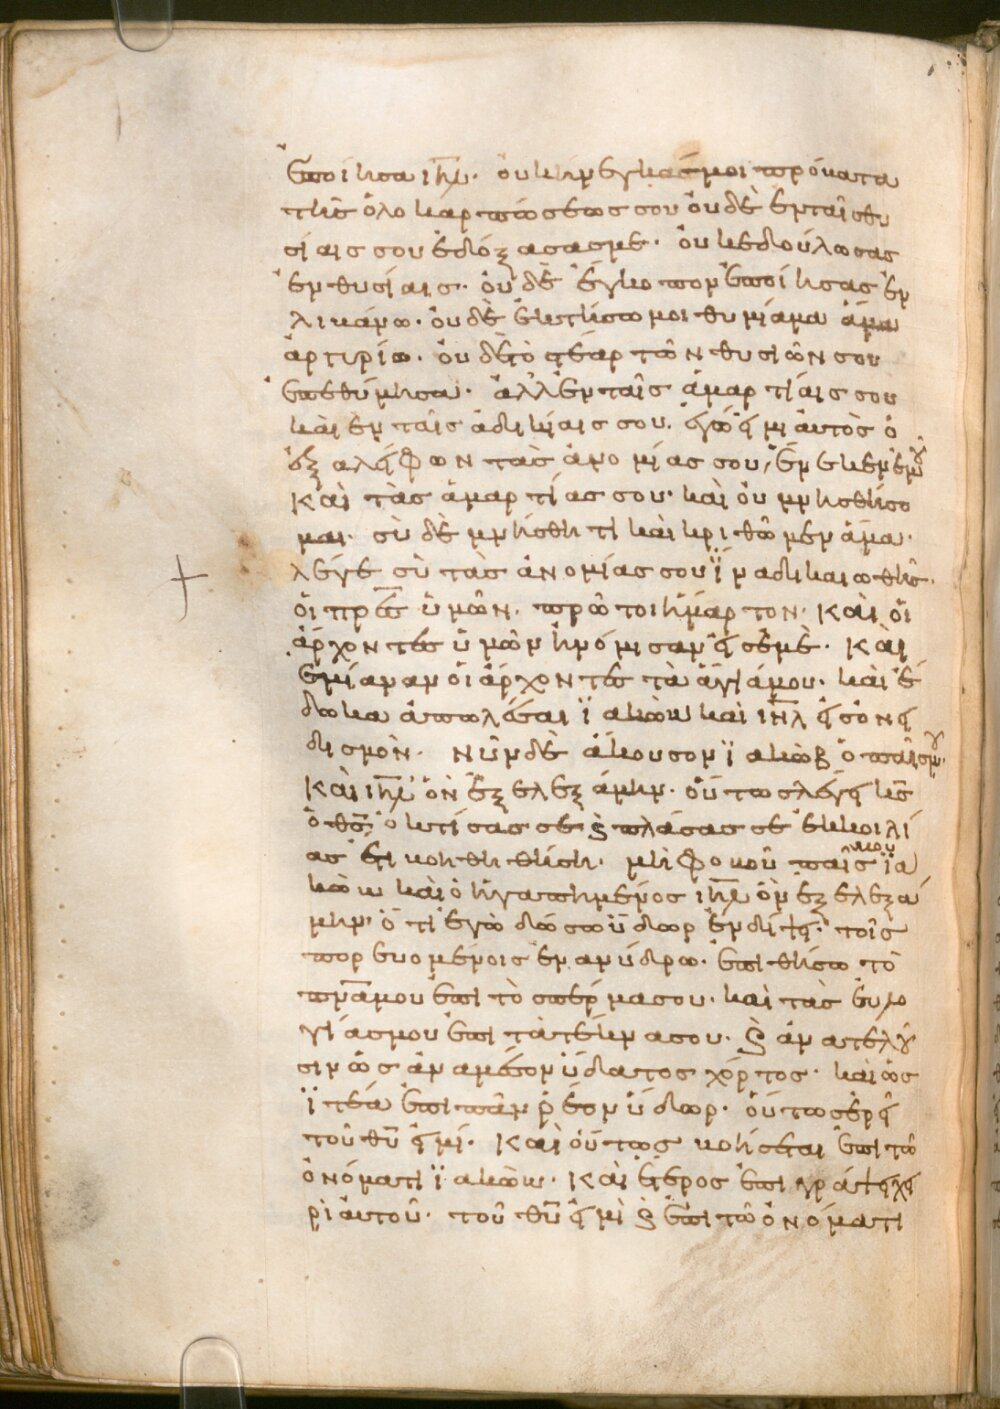 ἐποίησα ιη̅λ· οὐκ ἤνεγκάς μοι πρόβατα
τῆς ὁλοκαρπώσεώς σου οὐδὲ ἐν ταῖς θυ
σίαις σου ἐδόξασάς με· οὐκ ἐδούλωσας
ἐν θυσίαις· οὐδὲ ἔγκοπον ἐποίησας ἐν
λιβάνω· οὐδὲ ἐκτήσω μοι θυμίαμα
ἀργυρίω· οὐδὲ τὸ στέαρ τῶν θυσιῶν σου
ἐπεθύμησα· ἀλλ ἐν ταῖς ἁμαρτίαις σου
καὶ ἐν ταῖς ἀδικίαις σου. ἐγώ εἰμι αὐτὸς ὁ
ἐξαλείφων τὰς ἀνομίας σου, ἕνεκεν ἐμοῦ
καὶ τὰς ἁμαρτίας σου· καὶ οὐ μνησθήσο
μαι· σὺ δὲ μνήσθητι καὶ κριθῶμεν ἅμα·
λέγε σὺ τὰς ἀνομίας σου ἵνα δικαιωθῆς·
οἱ πρ̅ε̅ς ὑμῶν. πρῶτοι ἥμαρτον· καὶ οἱ
ἄρχοντες ὑμῶν ἠνόμισαν εἰς ἐμὲ· καὶ
ἐμίαναν οἱ ἄρχοντες τὰ ἅγιά μου· καὶ ἔ
δωκα ἀπολέσαι ϊακὼβ καὶ ιη̅λ εἰς ὀνει
δισμὸν· νῦν δὲ ἄκουσον ϊακὼβ ὁ παῖς μου·
καὶ ιη̅λ ὃν ἐξελεξάμην· οὕτως λέγει κς̅
ὁ θς̅ ὁ κτίσας σε καὶ πλάσας σε ἐκ κοιλί
ας ἔτι βοηθηθήση· μὴ φοβοῦ παῖς μου ϊα
κὼβ καὶ ὁ ἠγαπημένος ιη̅λ ὃν ἐξελεξά
μην· ὅτι ἐγὼ δώσω ὕδωρ ἐν δίψει· τοῖς
πορευομένοις ἐν ἀνύδρω· ἐπιθήσω τὸ
πν̅α̅ μου ἐπὶ τὸ σπέρμα σου· καὶ τὰς εὐλο
γίας μου ἐπὶ τὰ τέκνα σου· καὶ ἀνατελοῦ
σιν ὡς ἀναμέσον ὕδατος χόρτος· καὶ ὡς
ϊτέα ἐπὶ παν ρέον ὕδωρ· οὗτος ἐρεῖ
τοῦ θυ̅ εἰμί· καὶ οὕτως βοήσεται ἐπὶ τῶ
ὀνόματι ϊακὼβ· καὶ ἕτερος ἐπιγράψει χει
ρὶ αὐτοῦ· τοῦ θυ̅ εἰμὶ καὶ ἐπὶ τῶ ὀνόματι